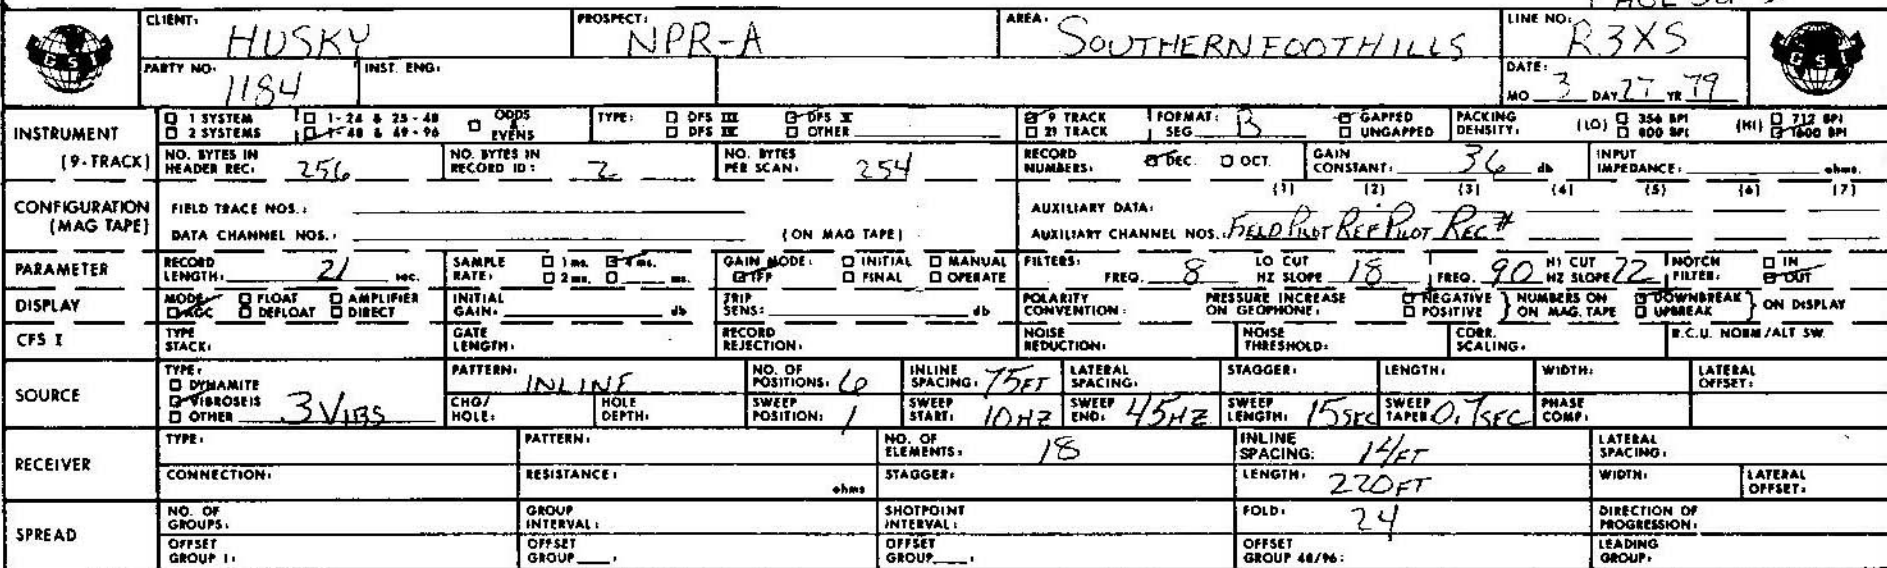 CLIENT: HUSKY PROSPECT: NPR-A AREA: SOUTHERN FOOTHILLS LINE NO: R3XS
GSI GSI
PARTY NO. 1184 INST. ENG. DATE: MO 3 DAY 27 YR 79
INSTRUMENT (9-TRACK)
1 SYSTEM 1-24 & 25-48 ODDS & EVENS TYPE: DFS III DFS V 9 TRACK FORMAT: SEG B GAPPED PACKING DENSITY: (LO) 356 BPI (HI) 712 BPI
2 SYSTEMS 1-48 & 49-96 DFS IV OTHER 21 TRACK UNGAPPED 800 BPI 1600 BPI
NO. BYTES IN HEADER REC: 256 NO. BYTES IN RECORD ID: 2 NO. BYTES PER SCAN: 254 RECORD NUMBERS: DEC. OCT. GAIN CONSTANT: 36 db INPUT IMPEDANCE: ohms.
CONFIGURATION (MAG TAPE)
(1) (2) (3) (4) (5) (6) (7)
FIELD TRACE NOS.: AUXILIARY DATA:
DATA CHANNEL NOS.: (ON MAG TAPE) AUXILIARY CHANNEL NOS. FIELD PILOT REF PILOT REC #
PARAMETER RECORD LENGTH: 21 sec. SAMPLE RATE: 1 ms. 4 ms. 2 ms. ms. GAIN MODE: INITIAL MANUAL IFP FINAL OPERATE FILTERS: FREQ. 8 LO CUT HZ SLOPE 18 FREQ. 90 HI CUT HZ SLOPE 72 NOTCH FILTER: IN OUT
DISPLAY MODE: FLOAT AMPLIFIER AGC DEFLOAT DIRECT INITIAL GAIN: db TRIP SENS: db POLARITY CONVENTION: PRESSURE INCREASE ON GEOPHONE: NEGATIVE POSITIVE } NUMBERS ON ON MAG. TAPE DOWNBREAK UPBREAK } ON DISPLAY
CFS I TYPE STACK: GATE LENGTH: RECORD REJECTION: NOISE REDUCTION: NOISE THRESHOLD: CORR. SCALING: R.C.U. NORM/ALT SW.
SOURCE
TYPE: DYNAMITE VIBROSEIS OTHER 3 VIBS
PATTERN: INLINE NO. OF POSITIONS: 6 INLINE SPACING: 75 FT LATERAL SPACING: STAGGER: LENGTH: WIDTH: LATERAL OFFSET:
CHG/HOLE: HOLE DEPTH: SWEEP POSITION: 1 SWEEP START: 10 HZ SWEEP END: 45 HZ SWEEP LENGTH: 15 SEC SWEEP TAPER: 0.7 SEC PHASE COMP:
RECEIVER
TYPE: PATTERN: NO. OF ELEMENTS: 18 INLINE SPACING: 14 FT LATERAL SPACING:
CONNECTION: RESISTANCE: ohms STAGGER: LENGTH: 220 FT WIDTH: LATERAL OFFSET:
SPREAD
NO. OF GROUPS: GROUP INTERVAL: SHOTPOINT INTERVAL: FOLD: 24 DIRECTION OF PROGRESSION:
OFFSET GROUP 1: OFFSET GROUP : OFFSET GROUP : OFFSET GROUP 48/96: LEADING GROUP: